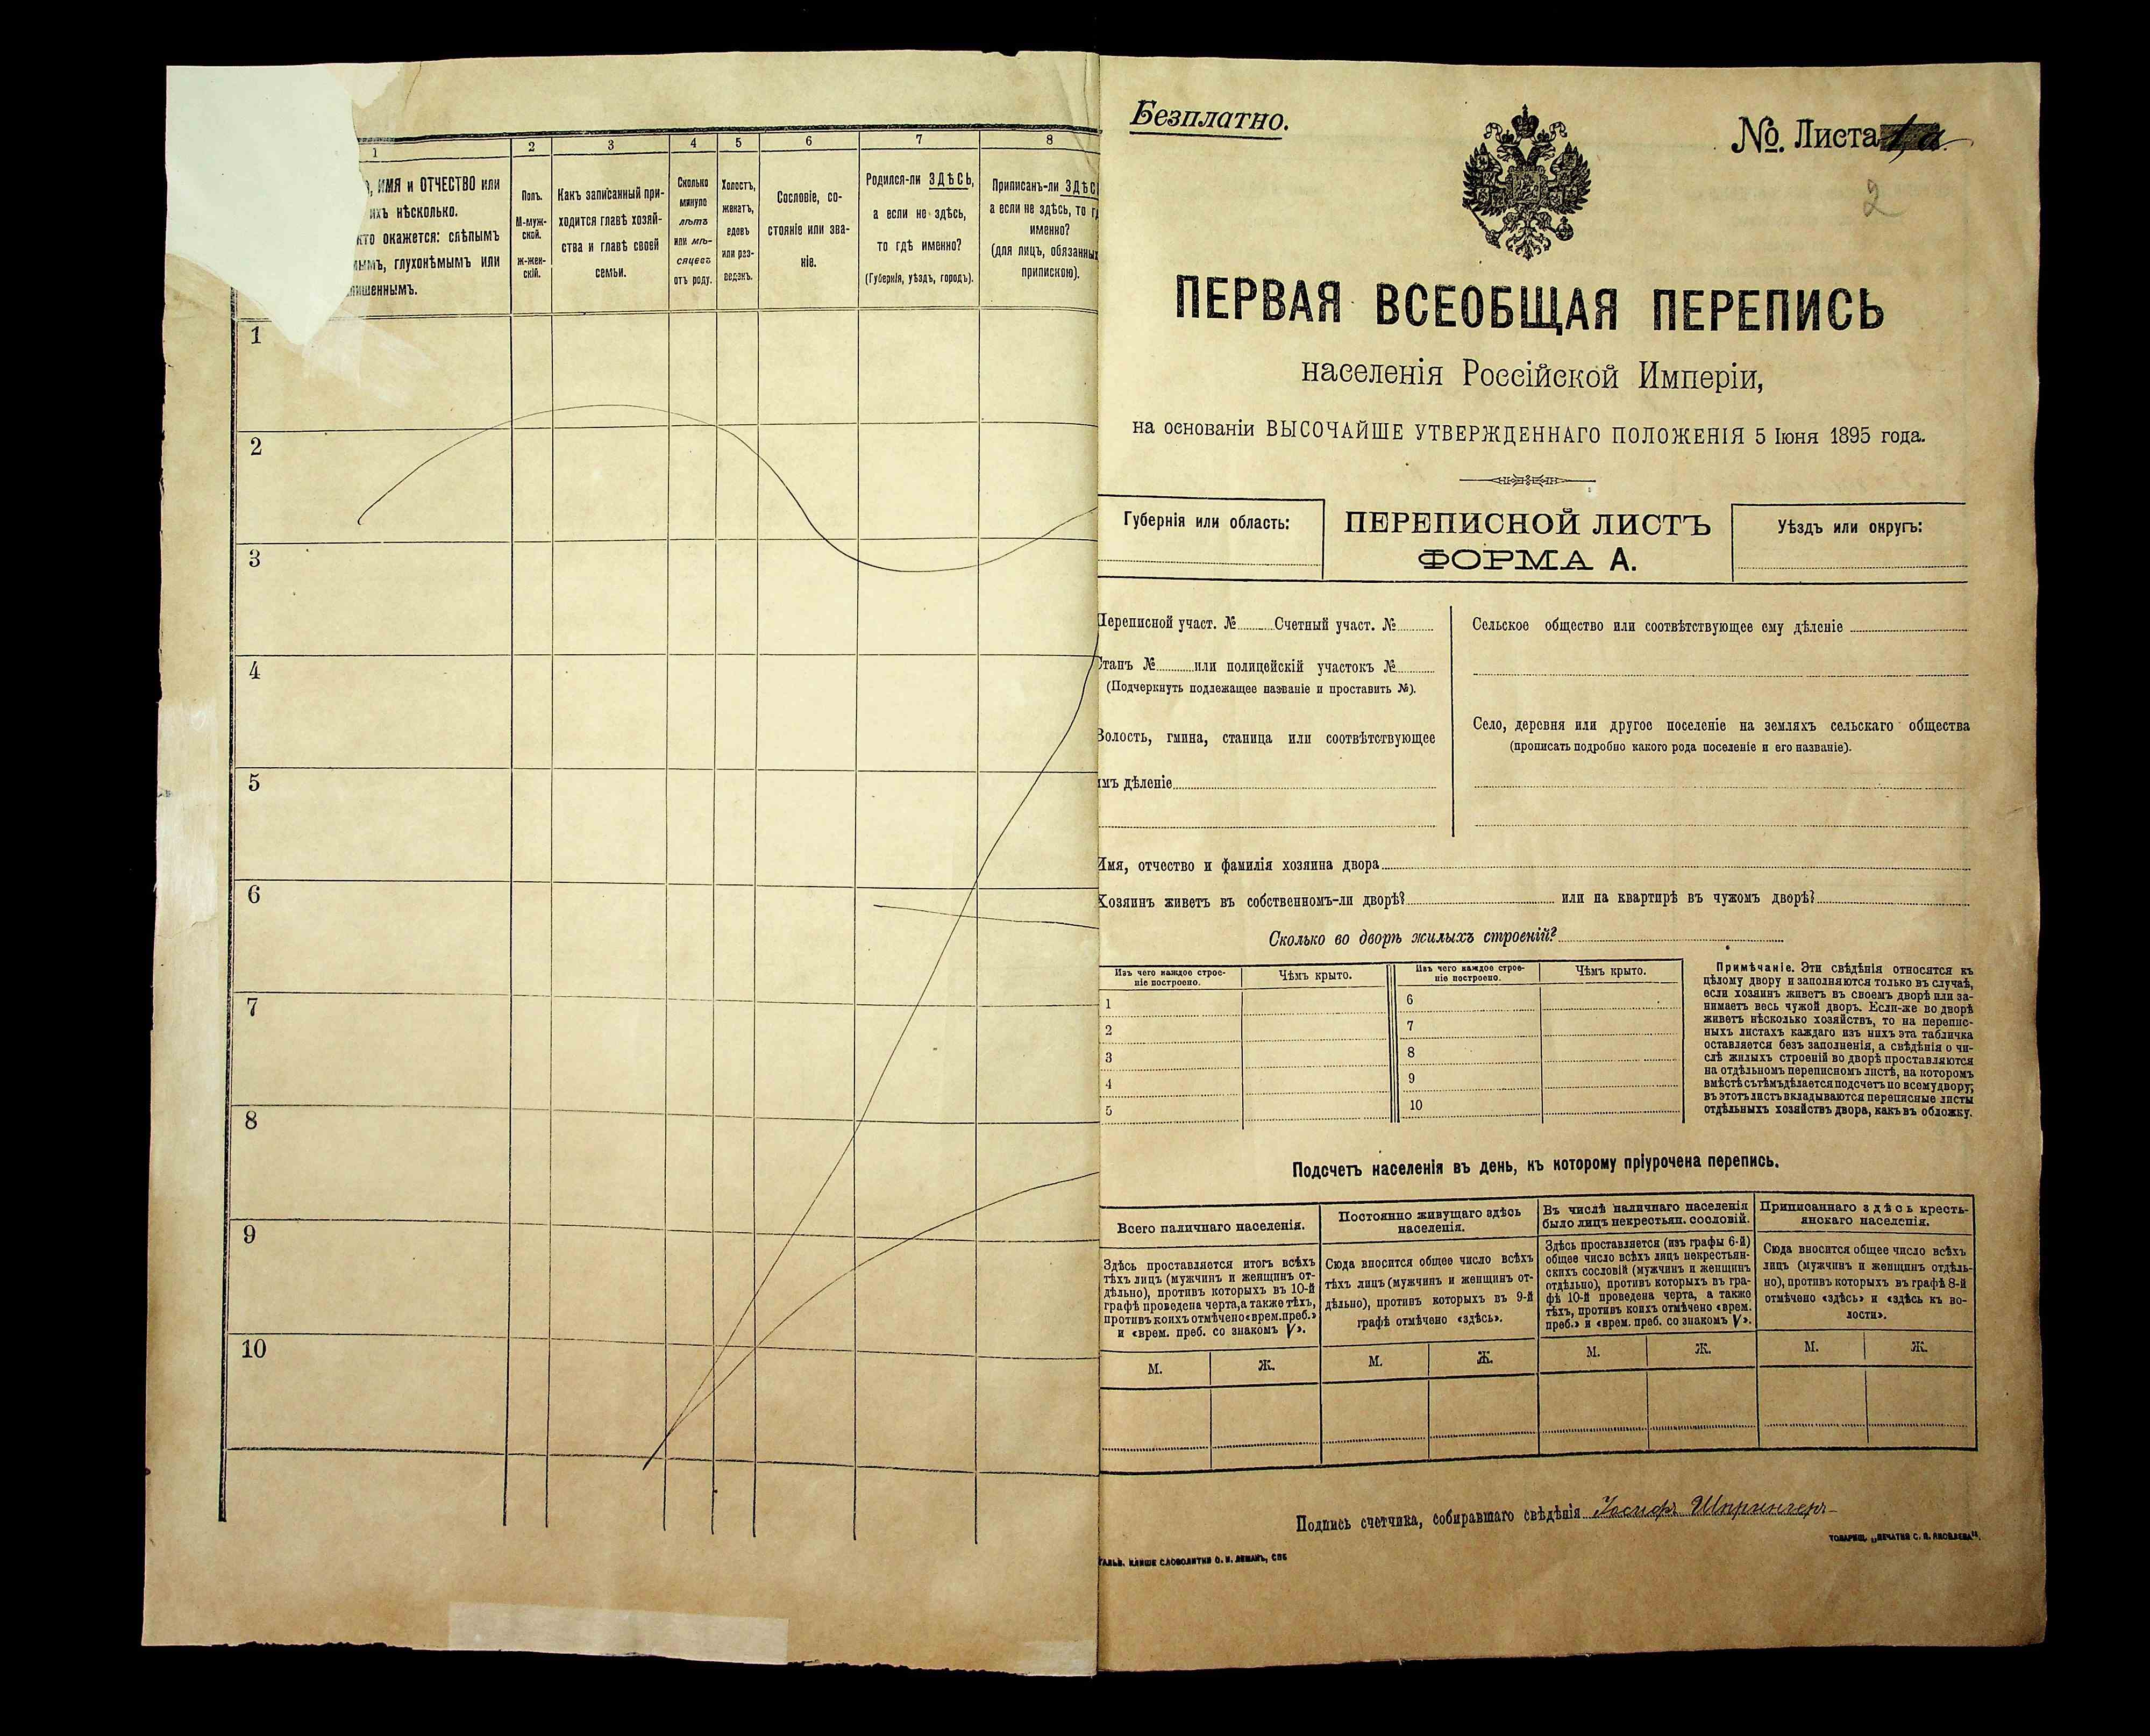 1
2
3
4
5
6
7
8
ИМЯ и ОТЧЕСТВО или
ихъ нѣсколько.
кто окажется: слѣпымъ
глухонѣмымъ или
Полъ.
М-муж-
ской.
Ж-жен-
скій.
Какъ записанный при-
ходится главѣ хозяй-
ства и главѣ своей
семьи.
Сколько
минуло
лѣтъ
или мѣ-
сяцевъ
отъ роду.
Холостъ,
женатъ,
вдовъ
или раз-
веденъ.
Сословіе, со-
стояніе или зва-
ніе.
Родился-ли ЗДѢСЬ,
а если не здѣсь,
то гдѣ именно?
(Губернія, уѣздъ, городъ).
Приписанъ-ли ЗДѢС
а если не здѣсь, то гд
именно?
(для лицъ, обязанных
припискою).
1
2
3
4
5
6
7
8
9
10
Безплатно.
№. Листа 1, а.
2
ПЕРВАЯ ВСЕОБЩАЯ ПЕРЕПИСЬ
населенія Россійской Имперіи,
на основаніи ВЫСОЧАЙШЕ УТВЕРЖДЕННАГО ПОЛОЖЕНІЯ 5 Іюня 1895 года.
Губернія или область:
ПЕРЕПИСНОЙ ЛИСТЪ
ФОРМА А.
Уѣздъ или округъ:
Переписной участ. № Счетный участ. №
Станъ № или полицейскій участокъ №
(Подчеркнуть подлежащее названіе и проставить №).
Волость, гмина, станица или соотвѣтствующее
имъ дѣленіе
Сельское общество или соотвѣтствующее ему дѣленіе
Село, деревня или другое поселеніе на земляхъ сельскаго общества
(прописать подробно какого рода поселеніе и его названіе).
Имя, отчество и фамилія хозяина двора
Хозяинъ живетъ въ собственномъ-ли дворѣ? или на квартирѣ въ чужомъ дворѣ?
Сколько во дворѣ жилыхъ строеній?
Изъ чего каждое строе-
ніе построено.
Чѣмъ крыто.
Изъ чего каждое строе-
ніе построено.
Чѣмъ крыто.
1
2
3
4
5
6
7
8
9
10
Примѣчаніе. Эти свѣдѣнія относятся къ
цѣлому двору и заполняются только въ случаѣ,
если хозяинъ живетъ въ своемъ дворѣ или за-
нимаетъ весь чужой дворъ. Если-же во дворѣ
живетъ нѣсколько хозяйствъ, то на перепис-
ныхъ листахъ каждаго изъ нихъ эта табличка
оставляется безъ заполненія, а свѣдѣнія о чи-
слѣ жилыхъ строеній во дворѣ проставляются
на отдѣльномъ переписномъ листѣ, на которомъ
вмѣстѣ съ тѣмъ дѣлается подсчетъ по всему двору;
въ этотъ листъ вкладываются переписные листы
отдѣльныхъ хозяйствъ двора, какъ въ обложку.
Подсчетъ населенія въ день, къ которому пріурочена перепись.
Всего наличнаго населенія.
Постоянно живущаго здѣсь
населенія.
Въ числѣ наличнаго населенія
было лицъ некрестьян. сословій.
Приписаннаго здѣсь кресть-
янскаго населенія.
Здѣсь проставляется итогъ всѣхъ
тѣхъ лицъ (мужчинъ и женщинъ от-
дѣльно), противъ которыхъ въ 10-й
графѣ проведена черта, а также тѣхъ,
противъ коихъ отмѣчено «врем. преб.»
и «врем. преб. со знакомъ V».
Сюда вносится общее число всѣхъ
тѣхъ лицъ (мужчинъ и женщинъ от-
дѣльно), противъ которыхъ въ 9-й
графѣ отмѣчено «здѣсь».
Здѣсь проставляется (изъ графы 6-й)
общее число всѣхъ лицъ некрестьян-
скихъ сословій (мужчинъ и женщинъ
отдѣльно), противъ которыхъ въ гра-
фѣ 10-й проведена черта, а также
тѣхъ, противъ коихъ отмѣчено «врем.
преб.» и «врем. преб. со знакомъ V».
Сюда вносится общее число всѣхъ
лицъ (мужчинъ и женщинъ отдѣль-
но), противъ которыхъ въ графѣ 8-й
отмѣчено «здѣсь» и «здѣсь къ во-
лости».
М. Ж. М. Ж. М. Ж. М. Ж.
Подпись счетчика, собиравшаго свѣдѣнія Іосифъ Шпрингеръ
ТОВАРИЩ. „ПЕЧАТНЯ С. П. ЯКОВЛЕВА".
КЛИШЕ СЛОВОЛИТНИ О. И. ЛЕМАНЪ, СПБ